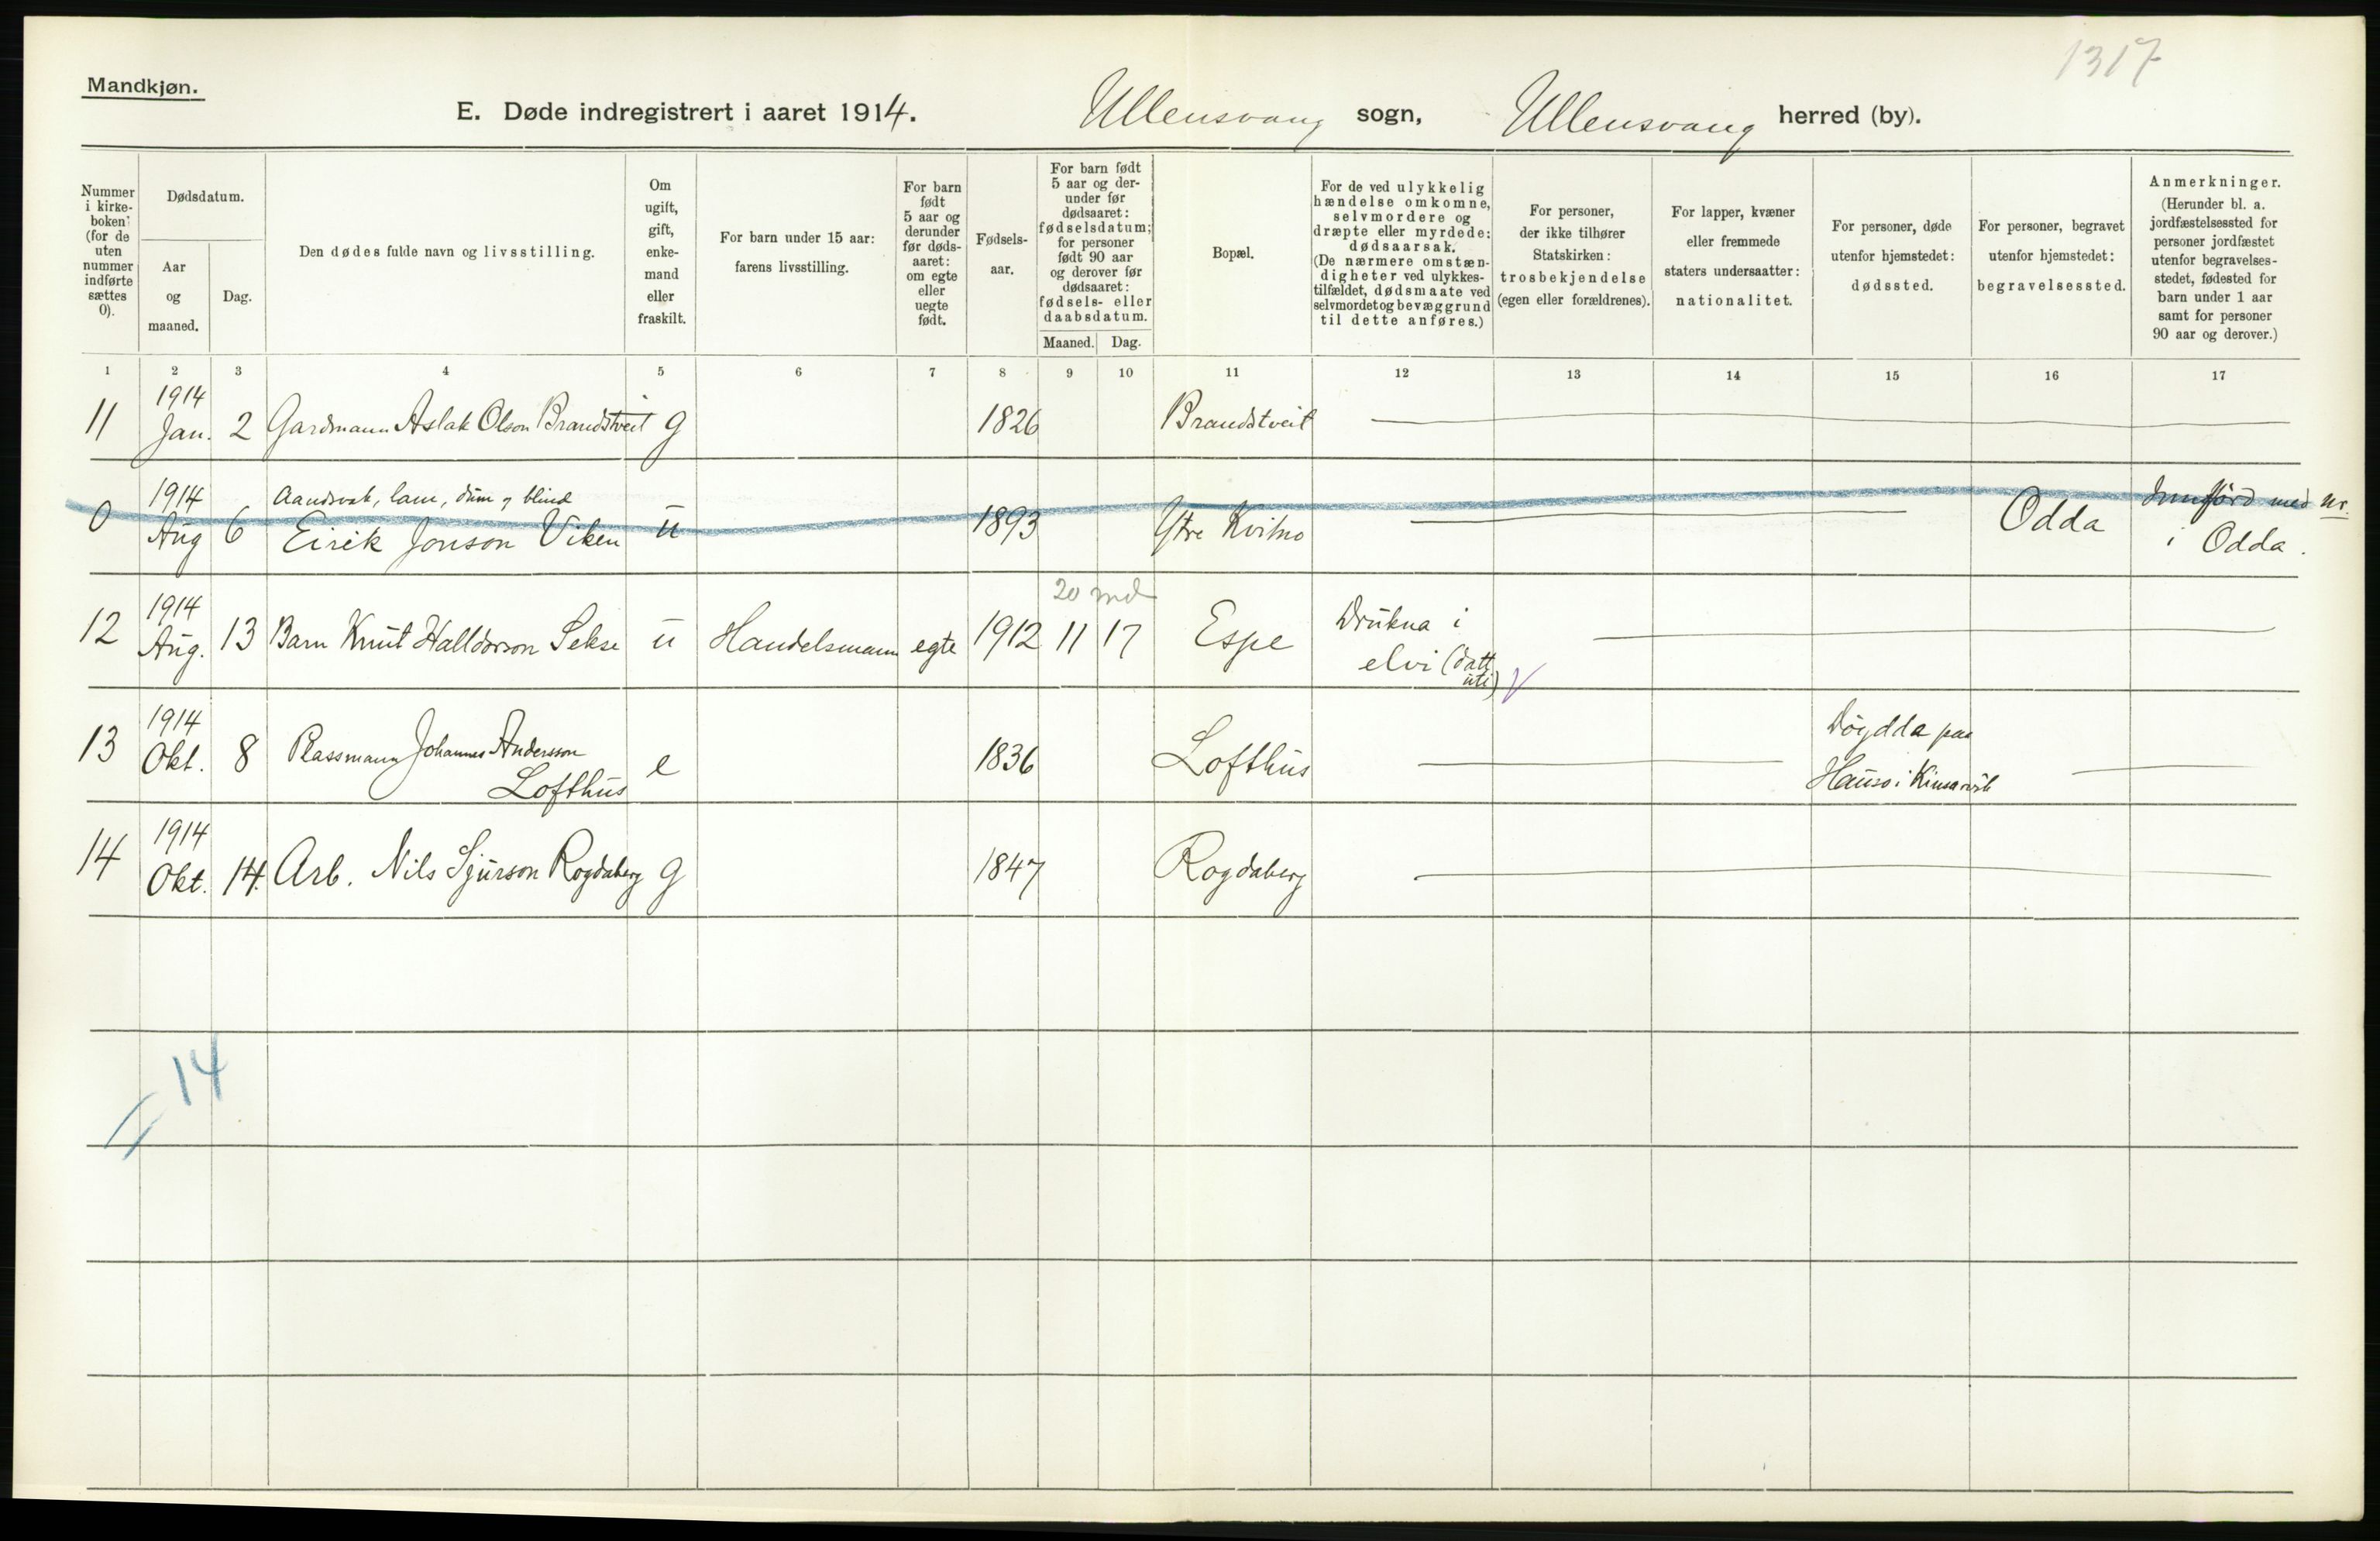 1317
Mandkjøn.
E. Døde indregistrert i aaret 1914. Ullensvang sogn, Ullensvang herred (by).
Nummer i kirke-boken (for de uten nummer indførte sættes 0).
Dødsdatum.
Aar og maaned.
Dag.
Den dødes fulde navn og livsstilling.
Om ugift, gift, enke-mand eller fraskilt.
For barn under 15 aar: farens livsstilling.
For barn født 5 aar og derunder før døds-aaret: om egte eller uegte født.
Fødsels-aar.
For barn født 5 aar og der-under før dødsaaret: fødselsdatum; for personer født 90 aar og derover før dødsaaret: fødsels- eller daabsdatum.
Maaned. Dag.
Bopæl.
For de ved ulykkelig hændelse omkomne, selvmordere og dræpte eller myrdede: dødsaarsak. (De nærmere omstæn-digheter ved ulykkes-tilfældet, dødsmaate ved selvmordet og bevæggrund til dette anføres.)
For personer, der ikke tilhører Statskirken: trosbekjendelse (egen eller forældrenes).
For lapper, kvæner eller fremmede staters undersaatter: nationalitet.
For personer, døde utenfor hjemstedet: dødssted.
For personer, begravet utenfor hjemstedet: begravelsessted.
Anmerkninger. (Herunder bl. a. jordfæstelsessted for personer jordfæstet utenfor begravelses-stedet, fødested for barn under 1 aar samt for personer 90 aar og derover.)
1 2 3 4 5 6 7 8 9 10 11 12 13 14 15 16 17
11 1914 Jan. 2 Gardmann Aslak Olson Brandstveit g 1826 Brandstveit
0 1914 Aug 6 Aandsvak, lam, dum og blind
Eirik Jonson Viken u 1893 Ytre Kvitno Odda Innførd med nr.
i Odda.
20 md
12 1914 Aug. 13 Barn Knut Halldorson Sekse u Handelsmann egte 1912 11 17 Espe Drukna i
elvi (datt
uti) V
13 1914 Okt. 8 Plassmann Johannes Andersson
Lofthus e 1836 Lofthus Døydda paa
Hauso i Kinsarvik
14 1914 Okt. 14. Arb. Nils Sjurson Rogdaberg g 1847 Rogdaberg
14